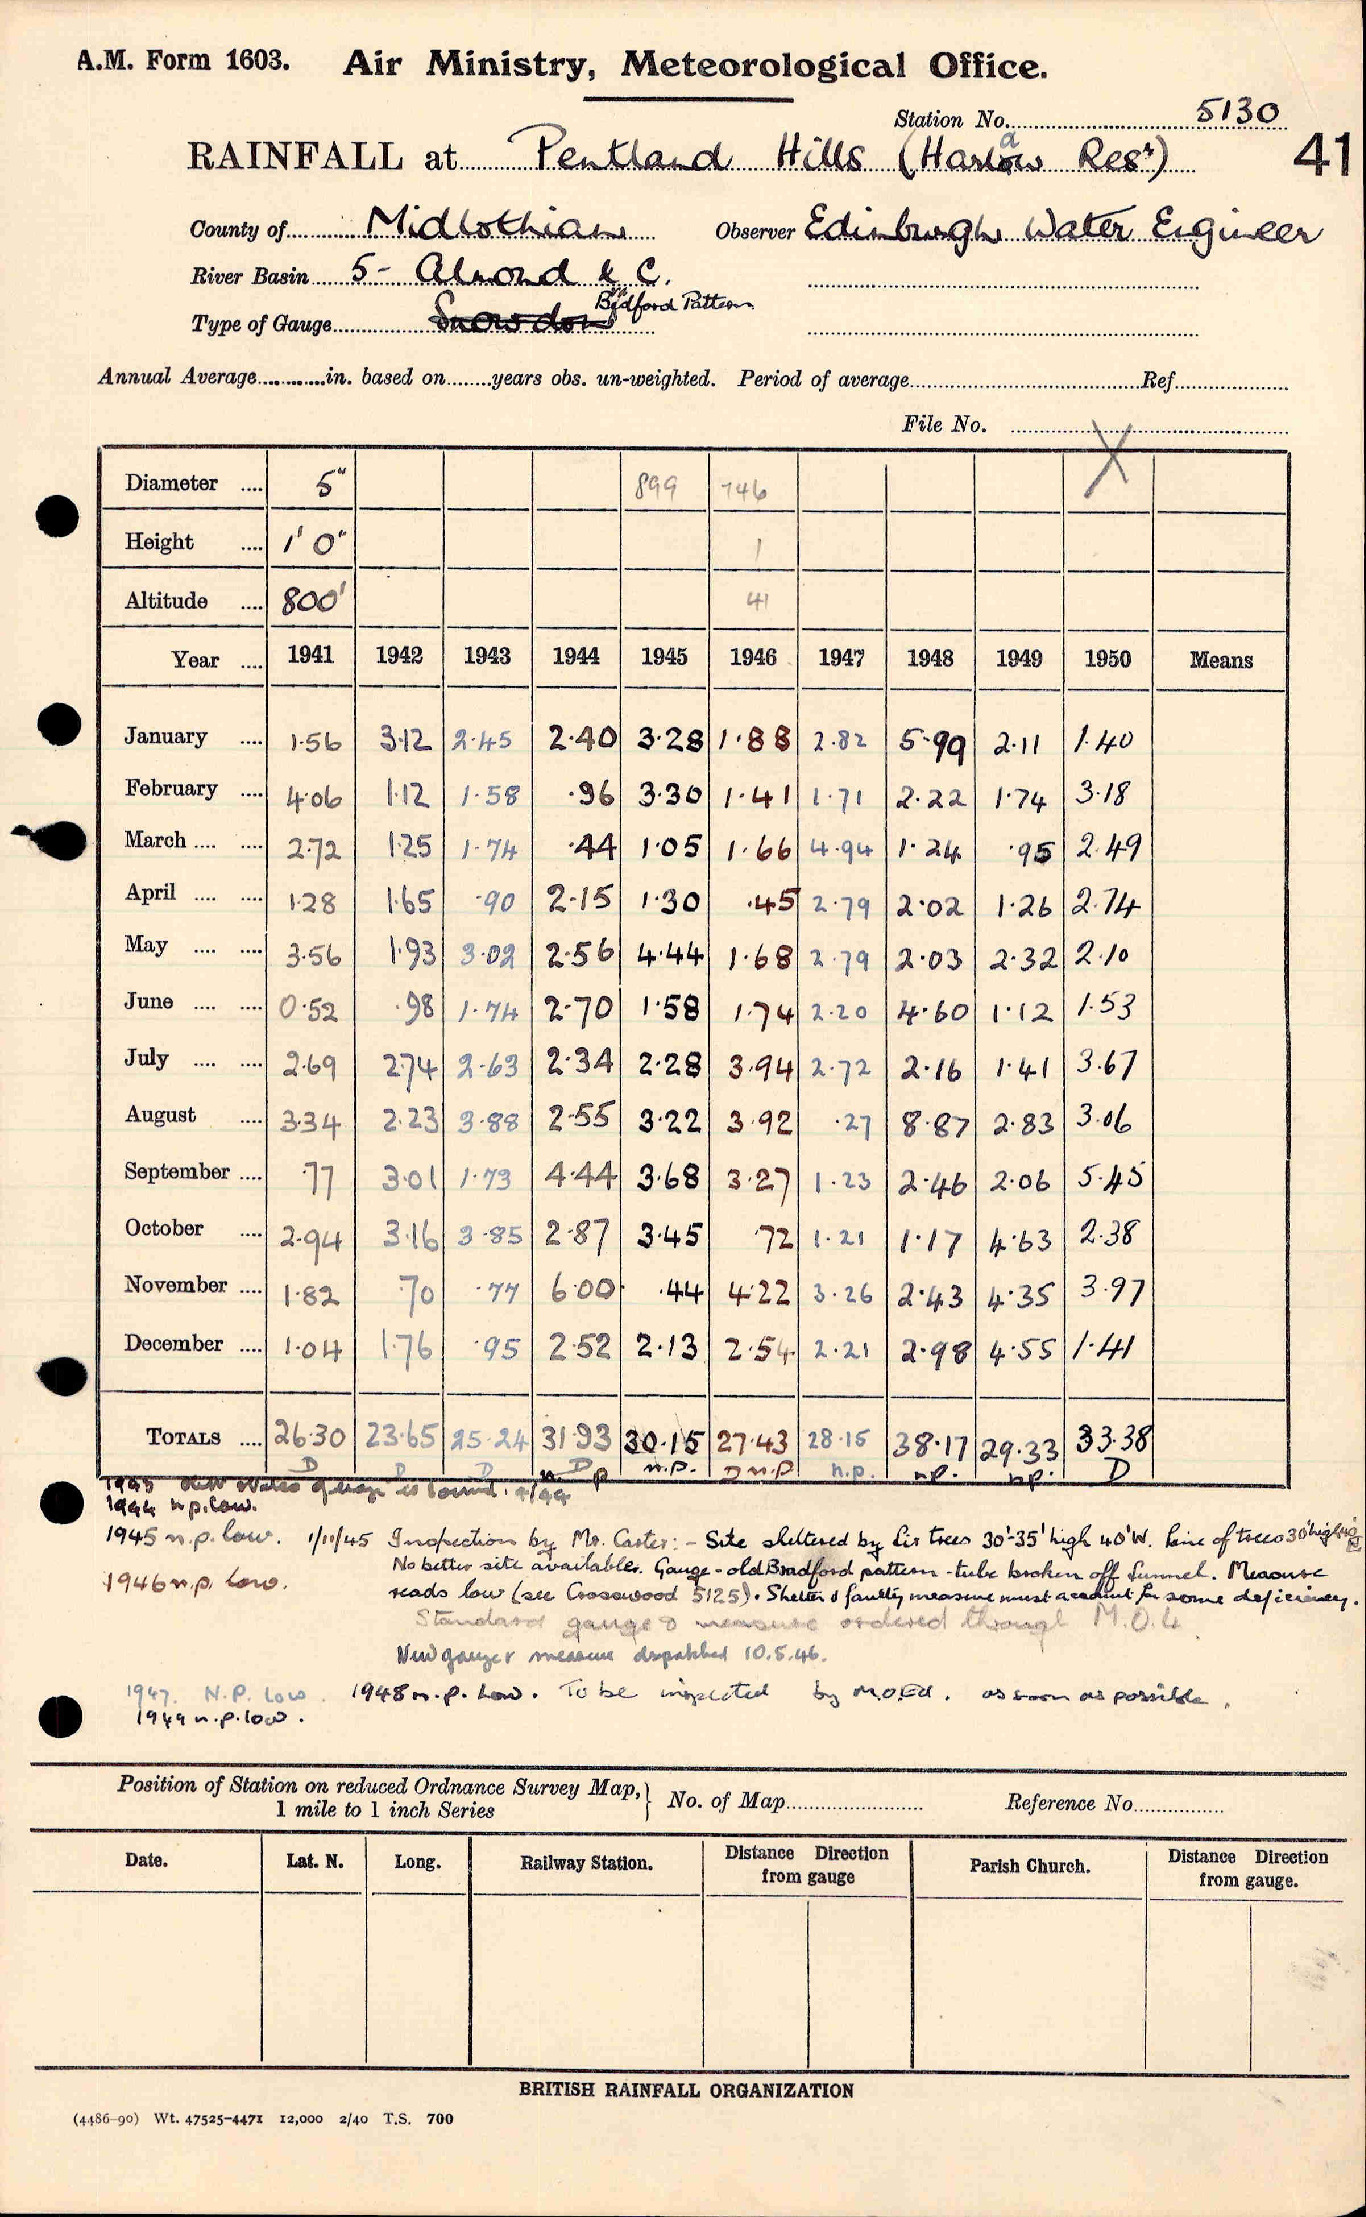 A.M. Form 1603. Air Ministry, Meteorological Office.
Station No. 5130
RAINFALL at Pentland Hills (Harlaw Resr) 41
County of Midlothian Observer Edinburgh Water Engineer
River Basin 5- Almond & C.
Type of Gauge Snowdon Bradford Pattern
Annual Average in. based on years obs. un-weighted. Period of average Ref
File No. X
Diameter 5" 899 746
Height 1' 0" 1
Altitude 800' 41
Year 1941 1942 1943 1944 1945 1946 1947 1948 1949 1950 Means
January 1.56 3.12 2.45 2.40 3.28 1.88 2.82 5.99 2.11 1.40
February 4.06 1.12 1.58 .96 3.30 1.41 1.71 2.22 1.74 3.18
March 2.72 1.25 1.74 .44 1.05 1.66 4.94 1.24 .95 2.49
April 1.28 1.65 .90 2.15 1.30 .45 2.79 2.02 1.26 2.74
May 3.56 1.93 3.02 2.56 4.44 1.68 2.79 2.03 2.32 2.10
June 0.52 .98 1.74 2.70 1.58 1.74 2.20 4.60 1.12 1.53
July 2.69 2.74 2.63 2.34 2.28 3.94 2.72 2.16 1.41 3.67
August 3.34 2.23 3.88 2.55 3.22 3.92 .27 8.87 2.83 3.06
September .77 3.01 1.73 4.44 3.68 3.27 1.23 2.46 2.06 5.45
October 2.94 3.16 3.85 2.87 3.45 .72 1.21 1.17 4.63 2.38
November 1.82 .70 .77 6.00 .44 4.22 3.26 2.43 4.35 3.97
December 1.04 1.76 .95 2.52 2.13 2.54 2.21 2.98 4.55 1.41
TOTALS 26.30 23.65 25.24 31.93 30.15 27.43 28.15 38.17 29.33 33.38
D D D n D p n.p. D n.p n.p. n.p. n.p. D
1943
1944 n.p. low.
1945 n.p. low. 1/11/45 Inspection by Mr. Carter:- Site sheltered by fir trees 30'-35' high 40' W. line of trees 30' high
No better site available. Gauge - old Bradford pattern - tube broken off funnel. Measure
1946 n.p. low. reads low (see Crosswood 5125). Shelter & faulty measure must account for some deficiency.
Standard gauge & measure ordered through M.O.4
New gauge & measure dispatched 10.5.46.
1947. N.P. Low. 1948 n.p. low. To be inspected by M.O.Ed. as soon as possible.
1949 n.p. low.
Position of Station on reduced Ordnance Survey Map, 1 mile to 1 inch Series No. of Map Reference No
Date. Lat. N. Long. Railway Station. Distance Direction from gauge Parish Church. Distance Direction from gauge.
BRITISH RAINFALL ORGANIZATION
(4486-90) Wt. 47525-4471 12,000 2/40 T.S. 700